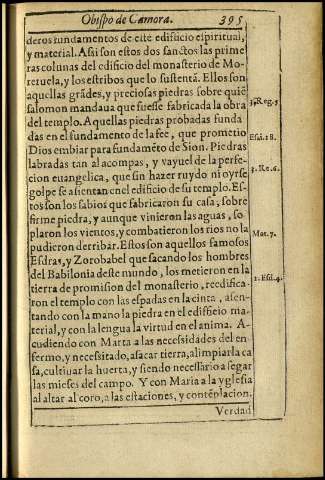 Obispo de Çamora. 395
deros fundamentos de este edificio espiritual,
y material. Asi son estos dos sanctos las prime
ras colunas del edificio del monasterio de Mo-
reruela, y los estribos que lo sustentã. Ellos son
aquellas grãdes, y preciosas piedras sobre quiẽ
salomon mandaua que fuesse fabricada la obra
3. Reg. 5
del templo. Aquellas piedras probadas funda
das en el fundamento de la fee, que prometio
Esai. 28.
Dios embiar para fundamẽto de Sion. Piedras
labradas tan al acompas, y vayuel de la perfe-
cion euangelica, que sin hazer ruydo ni oyrse
3. Re. 6.
golpe se asientan en el edificio de su templo. Es-
tos son los sabios que fabricaron su casa, sobre
firme piedra, y aunque vinieron las aguas, so-
plaron los vientos, y combatieron los rios no la
pudieron derribar. Estos son aquellos famosos
Mat. 7.
Esdras, y Zorobabel que sacando los hombres
del Babilonia deste mundo, los metieron en la
tierra de promision del monasterio, reedifica-
2. Esd. 4.
ron el templo con las espadas en la cinta, asen-
tando con la mano la piedra en el edificio ma-
terial, y con la lengua la virtud en el anima. A-
cudiendo con Marta a las necessidades del en-
fermo, y necesitado, a sacar tierra, alimpiar la ca
sa, cultiuar la huerta, y siendo necessario a segar
las mieses del campo. Y con Maria a la yglesia
al altar al coro, a las estaciones, y contẽplacion.
Verdad